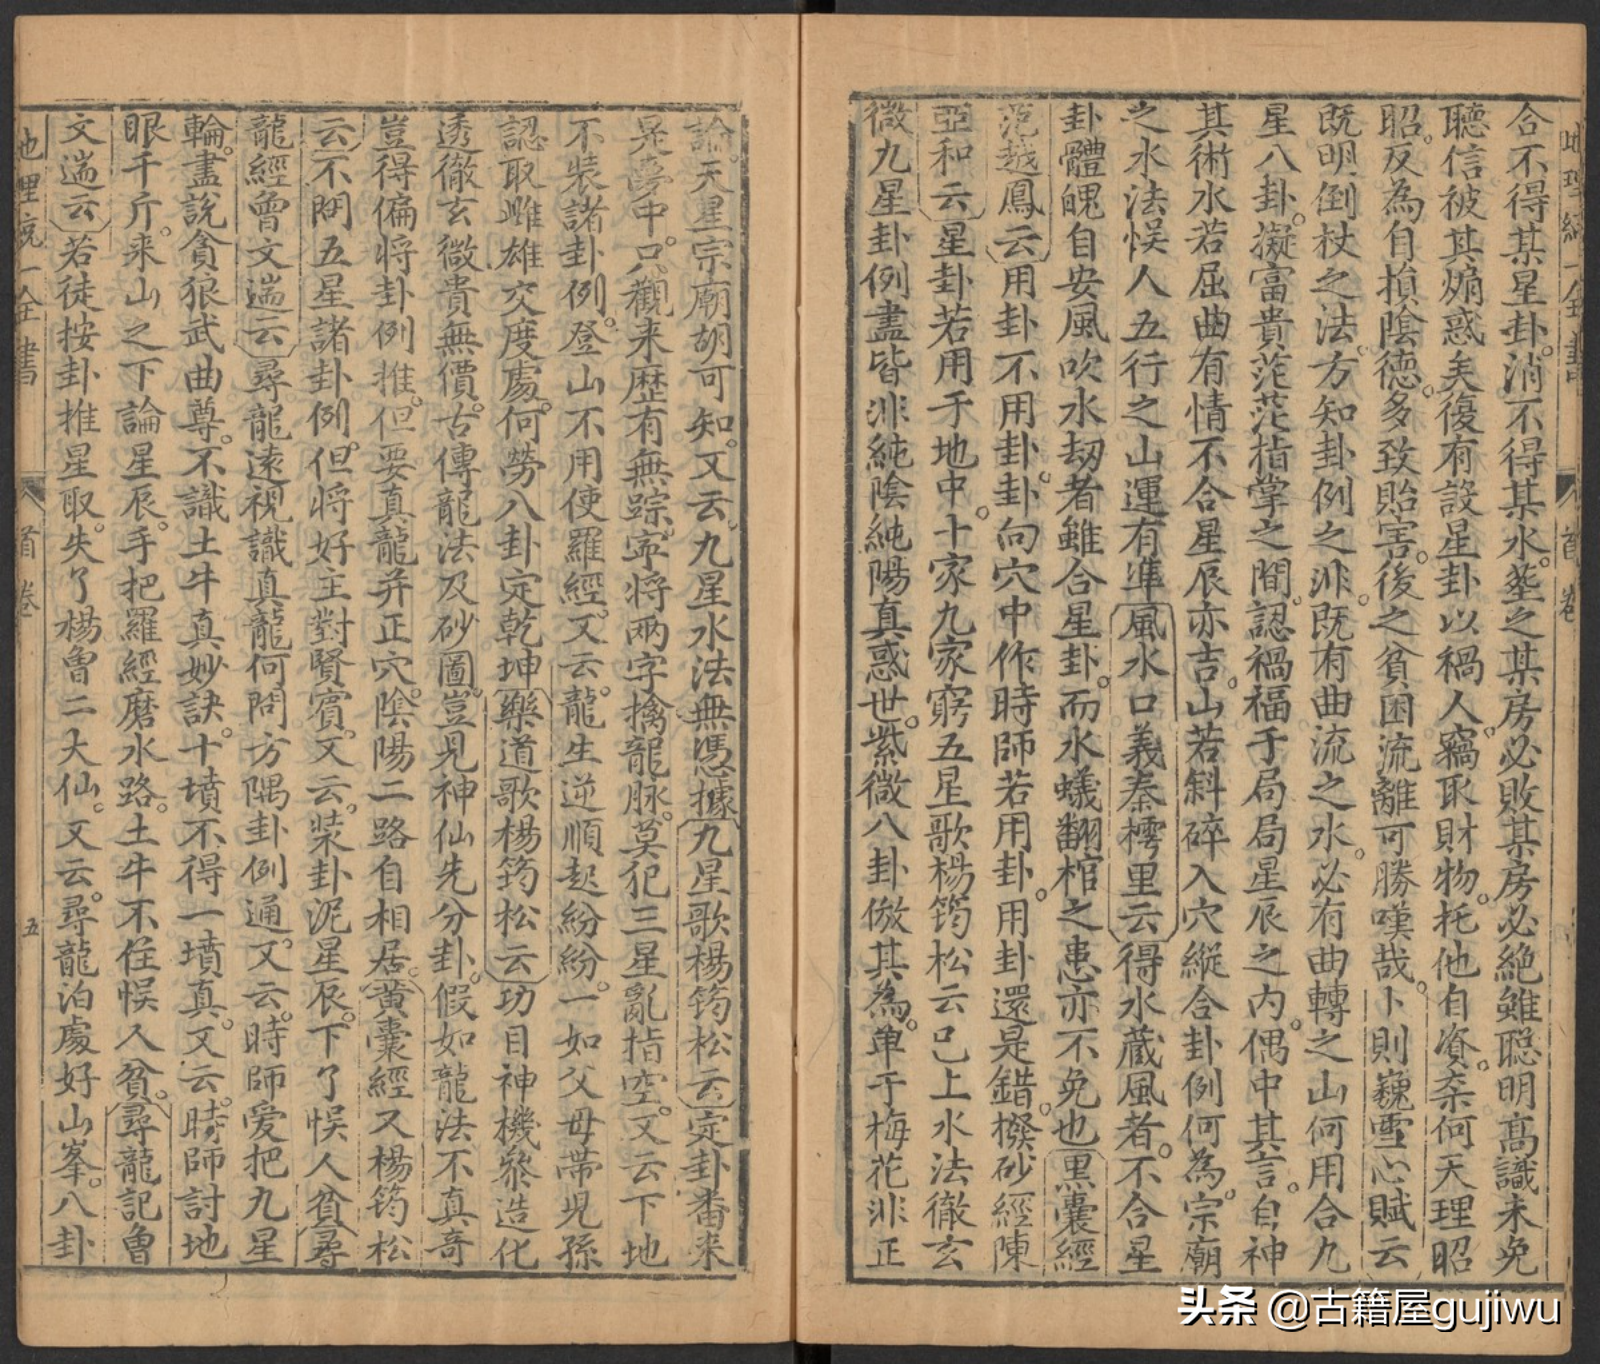 地理統一全書
首卷
合不得某星卦。消不得某水。葬之某房必敗某房必絶雖聪明高識未免
聽信被其煽惑矣復有設星卦以禍人竊取財物。托他自資。柰何天理昭
昭。反為自損陰德。多致貽害。後之貧困流離可勝嘆哉。卜則巍雪心賦云
既明倒杖之法。方知卦例之非。既有曲流之水。必有曲轉之山何用合九
星八卦。凝富貴茫茫指掌之間。認禍福于局局星辰之内。偶中其言。自神
其術水若屈曲有情不合星辰亦吉。山若斜碎入穴縱合卦例何為。宗廟
之水法悞人五行之山運有準風水口義秦樗里云得水藏風者。不合星
卦體魄自安風吹水刼者雖合星卦。而水蟻翻棺之患亦不免也黒囊經
范越鳳云用卦不用卦。卦向穴中作時師若用卦。用卦還是錯。橃砂經陳
亞和云星卦若用于地中。十家九家窮五星歌楊筠松云已上水法徹玄
微九星卦例盡皆非純陰純陽真惑世。紫微八卦倣其為。單于梅花非正
論。天星宗廟胡可知。又云。九星水法無憑據九星歌楊筠松云定卦番来
是夢中。只觀来歴有無踪。寕将两字擒龍脉。莫犯三星亂指空。又云下地
不裝諸卦例。登山不用使羅經。又云。龍生逆順起紛紛。一如父母帶兒孫
認取雌雄交度處。何勞八卦定乾坤藥道歌楊筠松云功目神機叅造化
透徹玄微貴無價。古傳龍法及砂圖。豈見神仙先分卦。假如龍法不真竒
豈得偏将卦例推。但要真龍并正穴。陰陽二路自相居。黄囊經又楊筠松
云不問五星諸卦例。但将好主對賢賓。又云。裝卦泥星辰。下了悞人貧尋
龍經曾文遄云尋龍遠視識真龍何問方隅卦例通。又云。時師爱把九星
輪。盡說貪狼武曲尊。不識土牛真妙訣。十墳不得一墳真。又云。時師討地
眼千斤。来山之下論星辰。手把羅經磨水路。土牛不住悞人貧。尋龍記曾
文遄云若徒按卦推星取。失了楊曾二大仙。又云。尋龍泊處好山峯。八卦
地理統一全書
首卷
五
头条 @古籍屋gujiwu